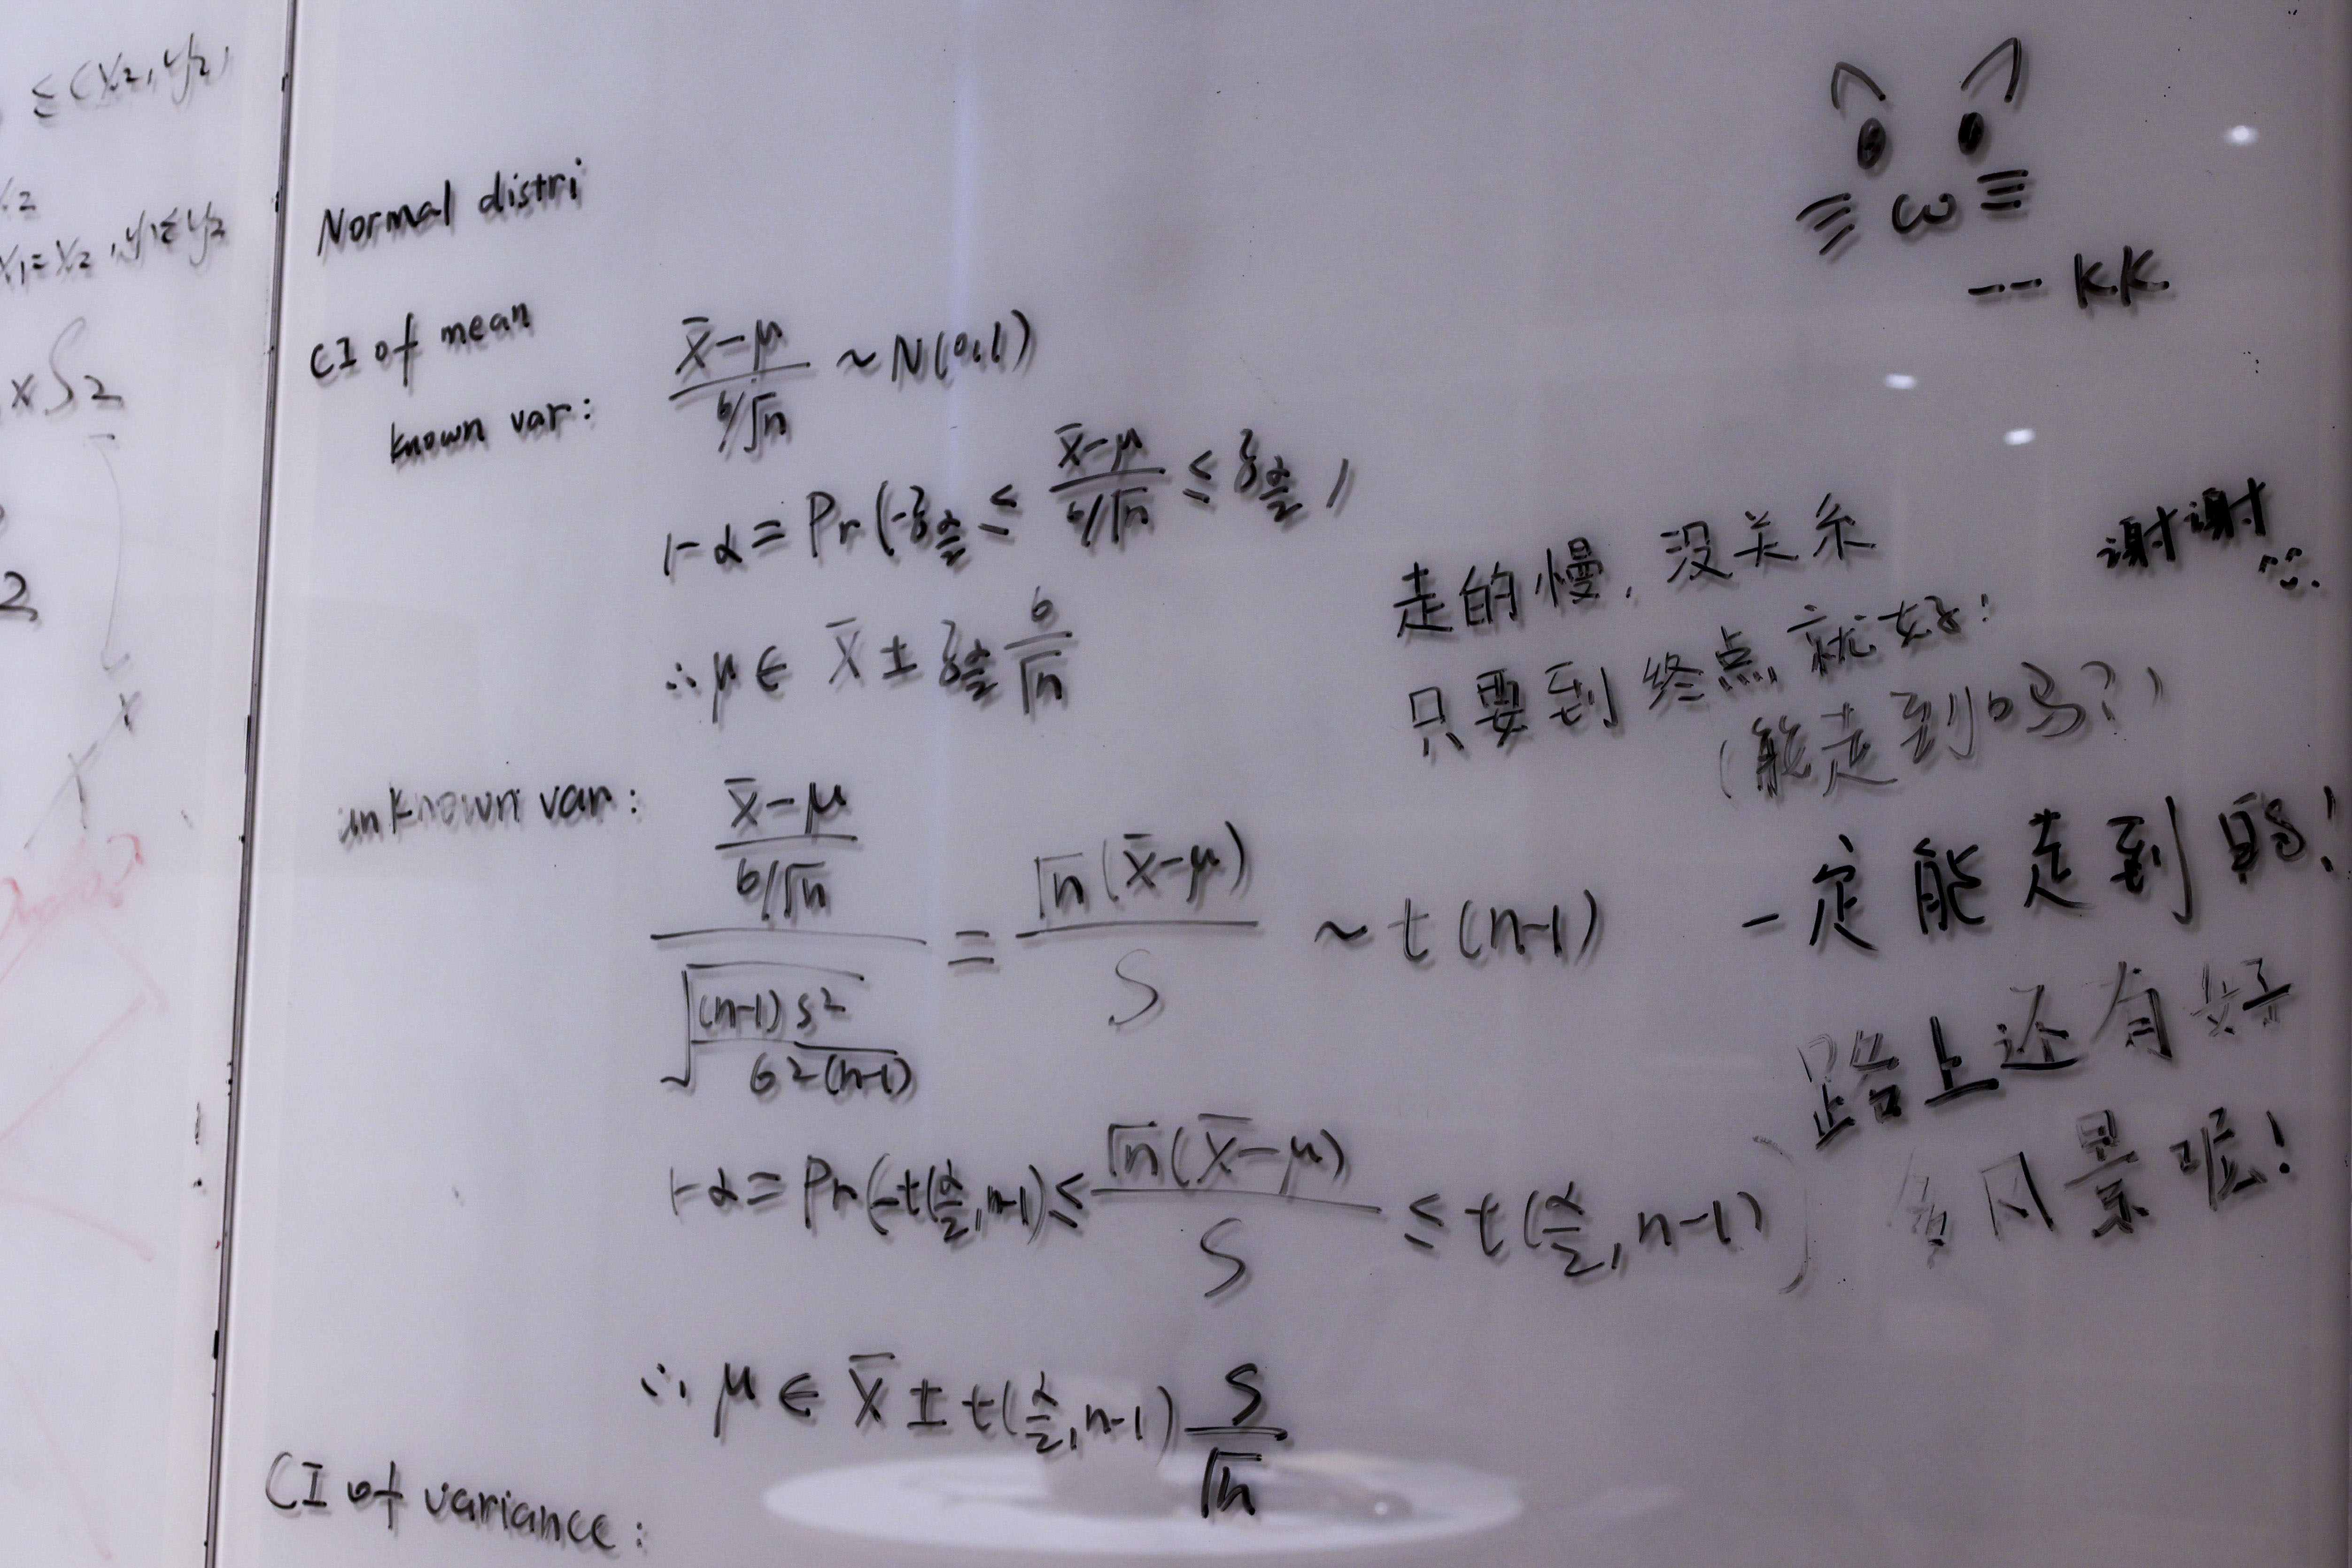 ≤(x2, y2)
x1=x2, y1≤y2
x S2
2
Normal distri
CI of mean
known var:
(x̄-μ)/(σ/√n) ~ N(0,1)
1-α = Pr(-ξα/2 ≤ (x̄-μ)/(σ/√n) ≤ ξα/2)
∴ μ ∈ x̄ ± ξα/2 σ/√n
unknown var:
((x̄-μ)/(σ/√n)) / √((n-1)s²/σ²(n-1)) = √n(x̄-μ)/S ~ t(n-1)
1-α = Pr(-t(α/2, n-1) ≤ √n(x̄-μ)/S ≤ t(α/2, n-1))
∴ μ ∈ x̄ ± t(α/2, n-1) S/√n
CI of variance:
ω
-- K.K.
走的慢, 没关系
只要到终点就好:
(能走到吗?)
谢谢
一定能走到的!
路上还有好
多风景呢!